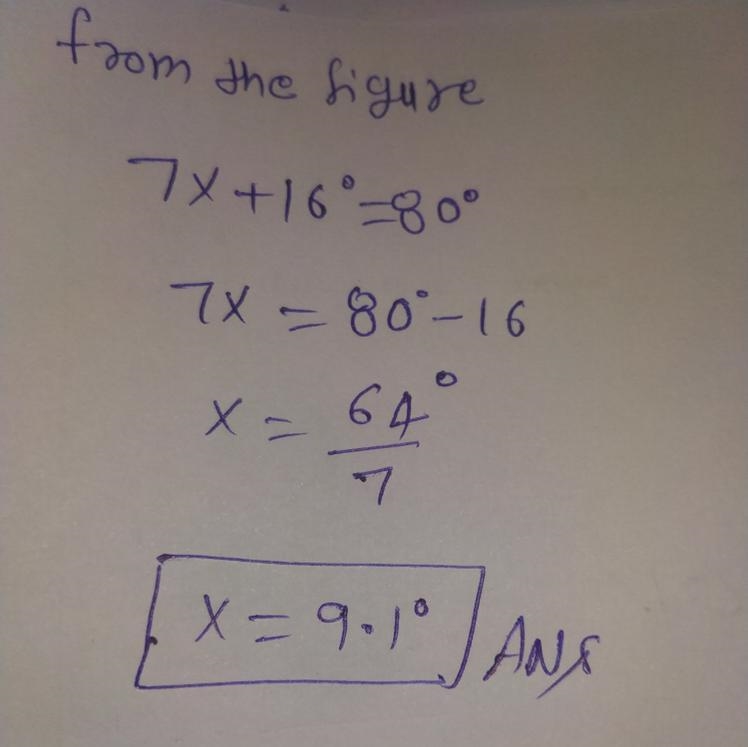 from the figure
7x+16°=80°
7x = 80°-16
x = 64°
7
x = 9.1° Ans